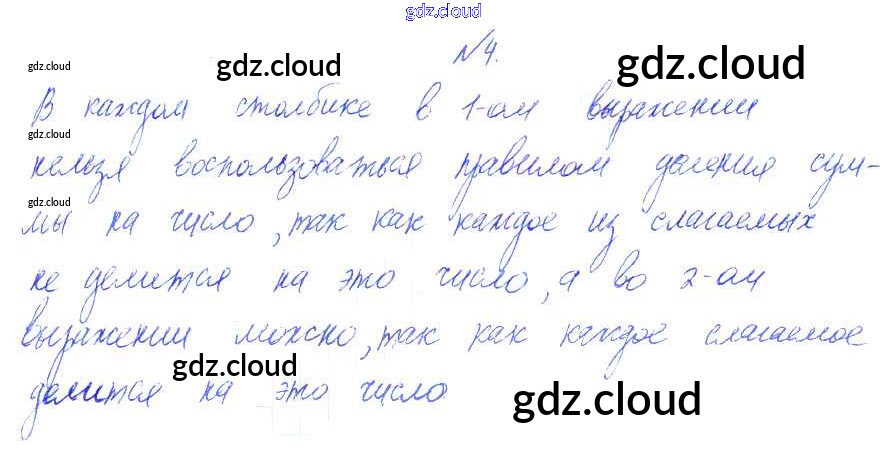 gdz.cloud
№4.
gdz.cloud gdz.cloud gdz.cloud
В каждом столбике в 1-ом выражении
gdz.cloud
нельзя воспользоваться правилом деления сум-
gdz.cloud
мы на число, так как каждое из слагаемых
не делится на это число, а во 2-ом
выражении можно, так как каждое слагаемое
gdz.cloud
делится на это число
gdz.cloud